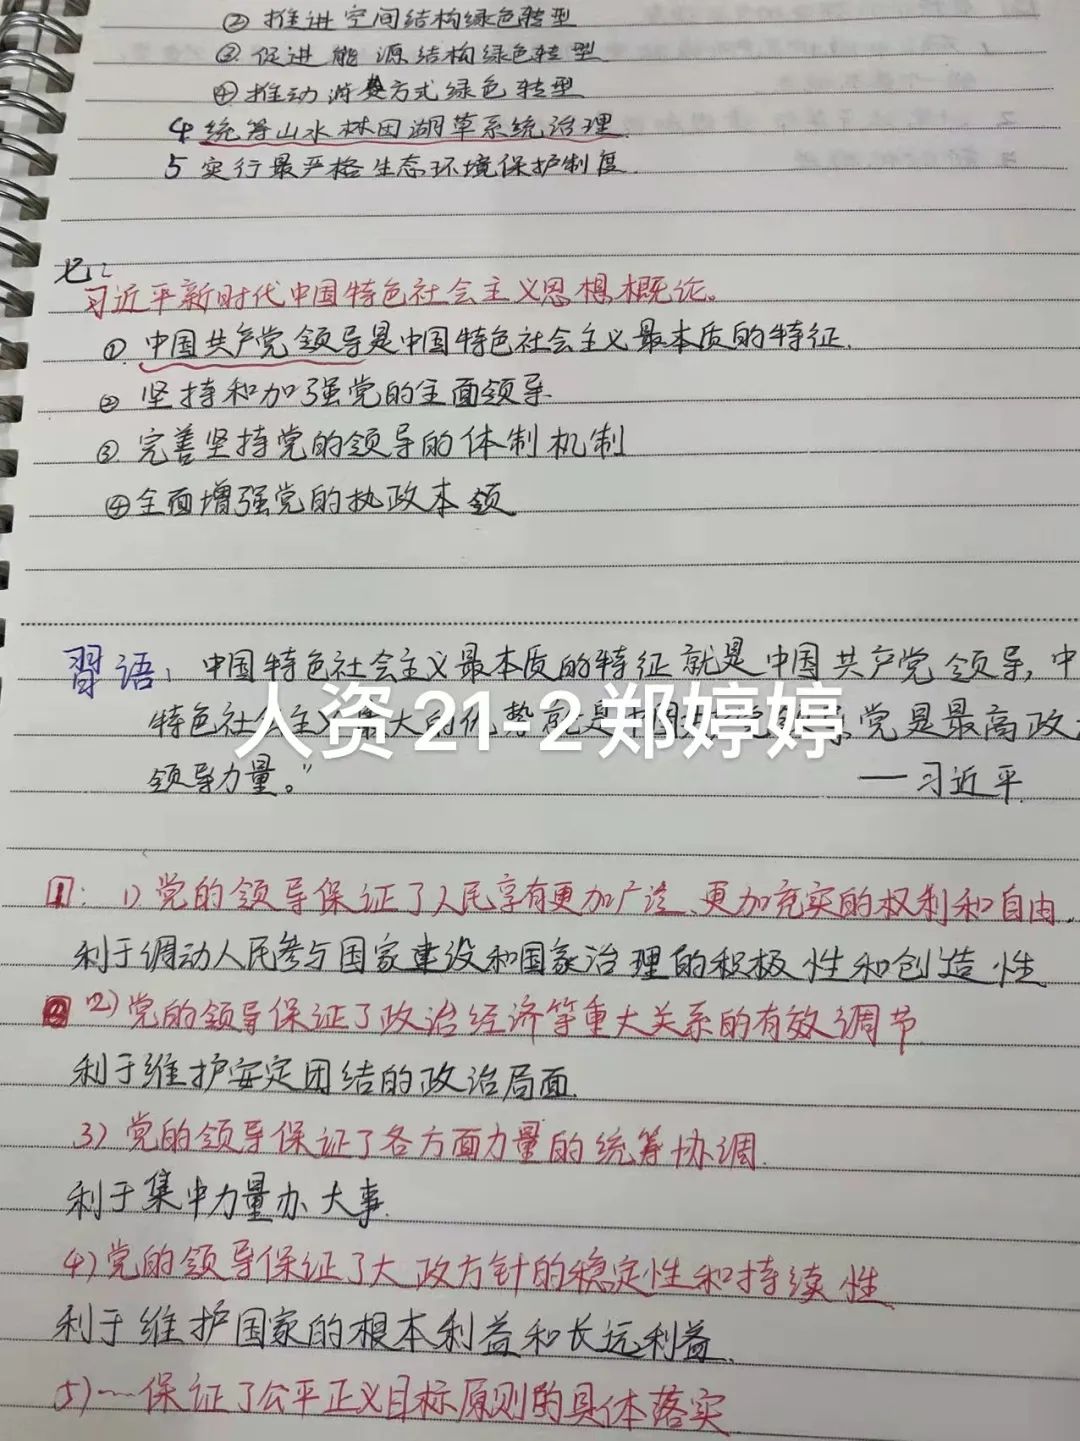 ② 推进空间结构绿色转型
③ 促进能源结构绿色转型
④ 推动消费方式绿色转型
4 统筹山水林田湖草系统治理.
5 实行最严格生态环境保护制度.
七:
习近平新时代中国特色社会主义思想概论。
① 中国共产党领导是中国特色社会主义最本质的特征.
② 坚持和加强党的全面领导.
③ 完善坚持党的领导的体制机制
④ 全面增强党的执政本领
習语: 中国特色社会主义最本质的特征就是中国共产党领导, 中
特色社会主义最大的优势就是中国共产党领导 党是最高政
人资21-2郑婷婷
领导力量。”
——习近平.
1: 1) 党的领导保证了人民享有更加广泛、更加充实的权利和自由,
利于调动人民参与国家建设和国家治理的积极性和创造性
2) 党的领导保证了政治经济等重大关系的有效调节
利于维护安定团结的政治局面.
3) 党的领导保证了各方面力量的统筹协调.
利于集中力量办大事.
4) 党的领导保证了大政方针的稳定性和持续性
利于维护国家的根本利益和长远利益.
5) ……保证了公平正义目标原则的具体落实